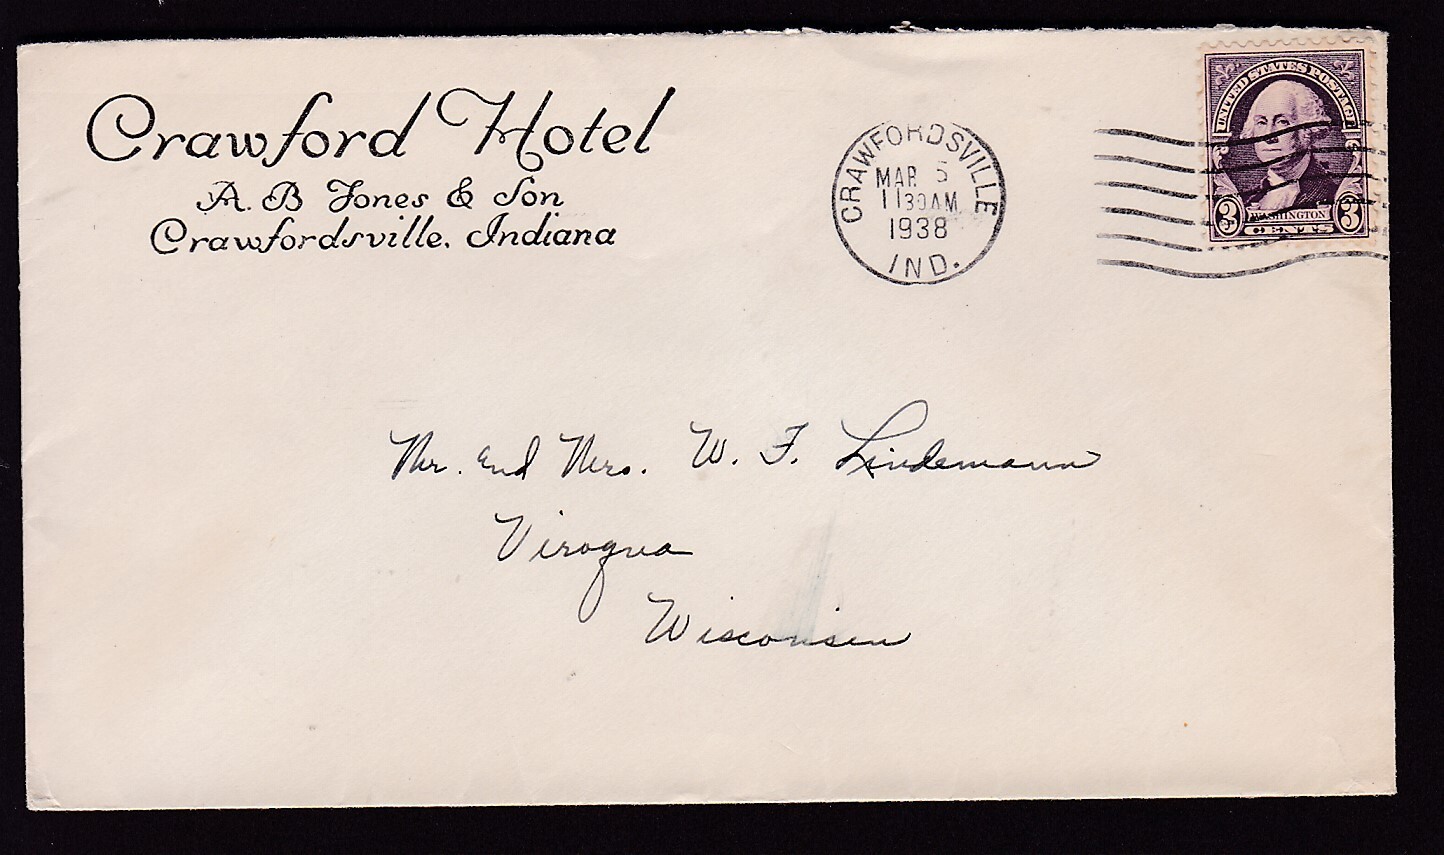 Crawford Hotel
A. B Jones & Son
Crawfordsville, Indiana
CRAWFORDSVILLE
MAR 5
1130AM
1938
IND.
UNITED STATES POSTAGE
3 WASHINGTON 3
CENTS
Mr. and Mrs. W. F. Lindemann
Viroqua
Wisconsin